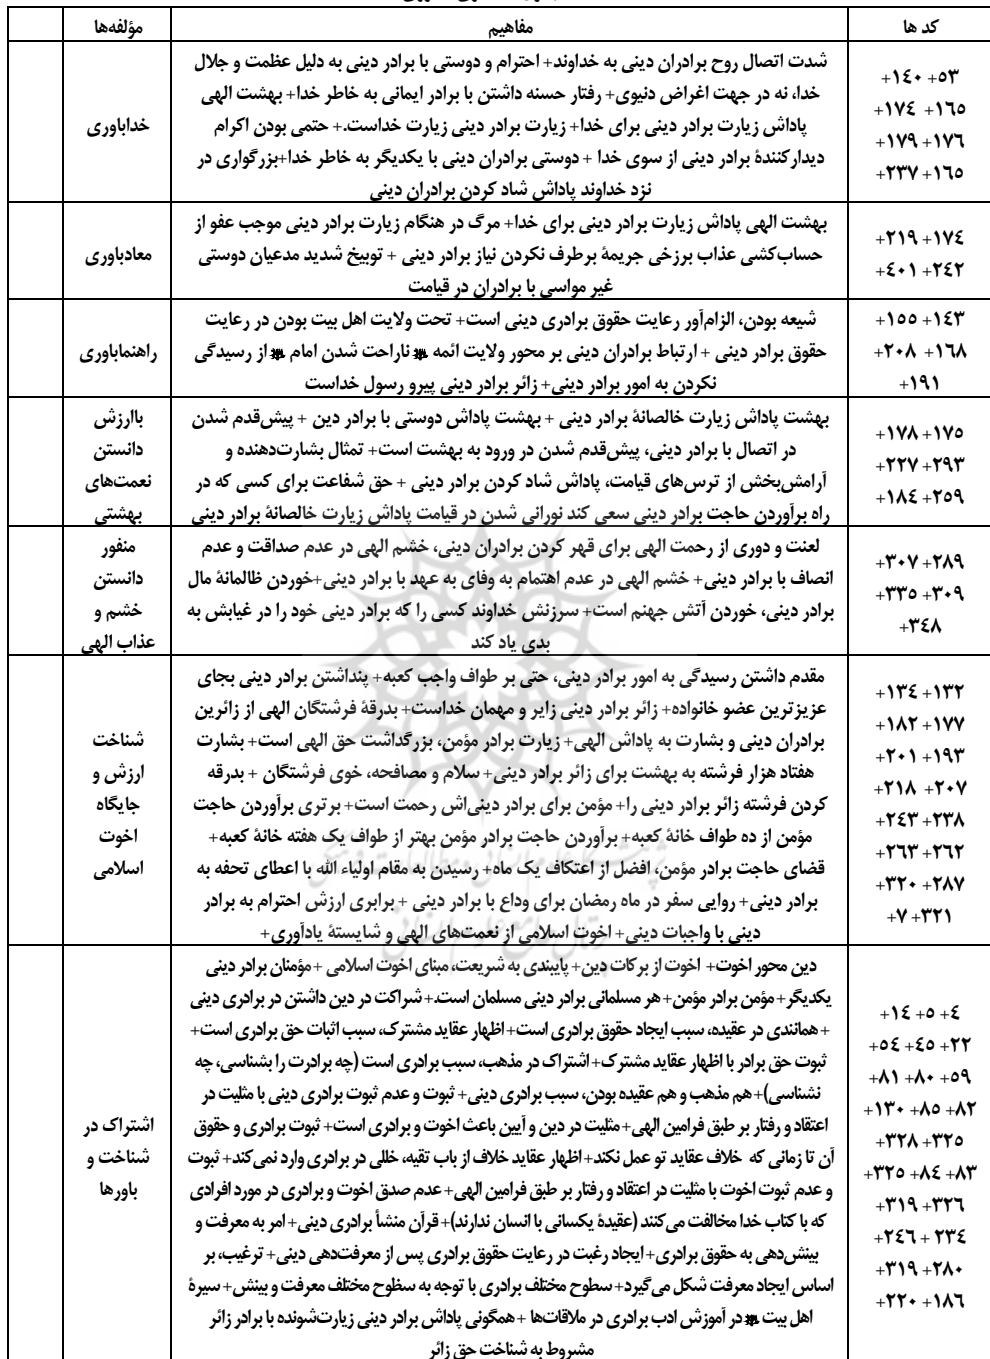 کد ها	مفاهیم	مؤلفه‌ها
۵۳+ ۱۴۰+
۱۶۵+ ۱۷۴+
۱۷۶+ ۱۷۹+
۱۶۵+ ۲۳۷+
شدت اتصال روح برادران دینی به خداوند+ احترام و دوستی با برادر دینی به دلیل عظمت و جلال
خدا، نه در جهت اغراض دنیوی+ رفتار حسنه داشتن با برادر ایمانی به خاطر خدا+ بهشت الهی
پاداش زیارت برادر دینی برای خدا+ زیارت برادر دینی زیارت خداست.+ حتمی بودن اکرام
دیدارکنندهٔ برادر دینی از سوی خدا + دوستی برادران دینی با یکدیگر به خاطر خدا+بزرگواری در
نزد خداوند پاداش شاد کردن برادران دینی
خداباوری
۱۷۴+ ۲۱۹+
۲۴۲+ ۴۰۱+
بهشت الهی پاداش زیارت برادر دینی برای خدا+ مرگ در هنگام زیارت برادر دینی موجب عفو از
حساب‌کشی عذاب برزخی جریمهٔ برطرف نکردن نیاز برادر دینی + توبیخ شدید مدعیان دوستی
غیر مواسی با برادران در قیامت
معادباوری
۱۴۳+ ۱۵۵+
۱۶۸+ ۲۰۸+
۱۹۱+
شیعه بودن، الزام‌آور رعایت حقوق برادری دینی است+ تحت ولایت اهل بیت بودن در رعایت
حقوق برادر دینی + ارتباط برادران دینی بر محور ولایت ائمه ناراحت شدن امام از رسیدگی
نکردن به امور برادر دینی+ زائر برادر دینی پیرو رسول خداست
راهنماباوری
۱۷۵+ ۱۷۸+
۲۹۳+ ۲۲۷+
۲۵۹+ ۱۸۴+
بهشت پاداش زیارت خالصانهٔ برادر دینی + بهشت پاداش دوستی با برادر دین + پیش‌قدم شدن
در اتصال با برادر دینی، پیش‌قدم شدن در ورود به بهشت است+ تمثال بشارت‌دهنده و
آرامش‌بخش از ترس‌های قیامت، پاداش شاد کردن برادر دینی + حق شفاعت برای کسی که در
راه برآوردن حاجت برادر دینی سعی کند نورانی شدن در قیامت پاداش زیارت خالصانهٔ برادر دینی
باارزش
دانستن
نعمت‌های
بهشتی
۲۸۹+ ۳۰۷+
۳۰۹+ ۳۳۵+
۳۴۸+
لعنت و دوری از رحمت الهی برای قهر کردن برادران دینی، خشم الهی در عدم صداقت و عدم
انصاف با برادر دینی+ خشم الهی در عدم اهتمام به وفای به عهد با برادر دینی+خوردن ظالمانهٔ مال
برادر دینی، خوردن آتش جهنم است+ سرزنش خداوند کسی را که برادر دینی خود را در غیابش به
بدی یاد کند
منفور
دانستن
خشم و
عذاب الهی
۱۳۲+ ۱۳۴+
۱۷۷+ ۱۸۲+
۱۹۳+ ۲۰۱+
۲۰۷+ ۲۱۸+
۲۳۸+ ۲۴۳+
۲۶۲+ ۲۶۳+
۲۸۷+ ۳۲۰+
۳۲۱+ ۷+
مقدم داشتن رسیدگی به امور برادر دینی، حتی بر طواف واجب کعبه+ پنداشتن برادر دینی بجای
عزیزترین عضو خانواده+ زائر برادر دینی زایر و مهمان خداست+ بدرقهٔ فرشتگان الهی از زائرین
برادران دینی و بشارت به پاداش الهی+ زیارت برادر مؤمن، بزرگداشت حق الهی است+ بشارت
هفتاد هزار فرشته به بهشت برای زائر برادر دینی+ سلام و مصافحه، خوی فرشتگان + بدرقه
کردن فرشته زائر برادر دینی را+ مؤمن برای برادر دینی‌اش رحمت است+ برتری برآوردن حاجت
مؤمن از ده طواف خانهٔ کعبه+ برآوردن حاجت برادر مؤمن بهتر از طواف یک هفته خانهٔ کعبه+
قضای حاجت برادر مؤمن، افضل از اعتکاف یک ماه+ رسیدن به مقام اولیاء الله با اعطای تحفه به
برادر دینی+ روایی سفر در ماه رمضان برای وداع با برادر دینی + برابری ارزش احترام به برادر
دینی با واجبات دینی+ اخوت اسلامی از نعمت‌های الهی و شایستهٔ یادآوری+
شناخت
ارزش و
جایگاه
اخوت
اسلامی
۴+ ۵+ ۱۴+
۲۲+ ۴۵+ ۵۴+
۵۹+ ۸۰+ ۸۱+
۸۲+ ۸۵+ ۱۳۰+
۳۲۵+ ۳۲۸+
۸۳+ ۸۴+ ۳۲۵+
۳۲۶+ ۳۱۹+
۲۳۴ + ۲۴۶+
۲۸۰+ ۳۱۹+
۱۸۶+ ۲۲۰+
دین محور اخوت+ اخوت از برکات دین+ پایبندی به شریعت، مبنای اخوت اسلامی +مؤمنان برادر دینی
یکدیگر+ مؤمن برادر مؤمن+ هر مسلمانی برادر دینی مسلمان است.+ شراکت در دین داشتن در برادری دینی
+همانندی در عقیده، سبب ایجاد حقوق برادری است+ اظهار عقاید مشترک، سبب اثبات حق برادری است+
ثبوت حق برادر با اظهار عقاید مشترک+ اشتراک در مذهب، سبب برادری است (چه برادرت را بشناسی، چه
نشناسی)+ هم مذهب و هم عقیده بودن، سبب برادری دینی+ ثبوت و عدم ثبوت برادری دینی با مثلیت در
اعتقاد و رفتار بر طبق فرامین الهی+ مثلیت در دین و آیین باعث اخوت و برادری است+ ثبوت برادری و حقوق
آن تا زمانی که خلاف عقاید تو عمل نکند+ اظهار عقاید خلاف از باب تقیه، خللی در برادری وارد نمی‌کند+ ثبوت
و عدم ثبوت اخوت با مثلیت در اعتقاد و رفتار بر طبق فرامین الهی+ عدم صدق اخوت و برادری در مورد افرادی
که با کتاب خدا مخالفت می‌کنند (عقیدهٔ یکسانی با انسان ندارند)+ قرآن منشأ برادری دینی+ امر به معرفت و
بینش‌دهی به حقوق برادری+ ایجاد رغبت در رعایت حقوق برادری پس از معرفت‌دهی دینی+ ترغیب، بر
اساس ایجاد معرفت شکل می‌گیرد+ سطوح مختلف برادری با توجه به سظوح مختلف معرفت و بینش+ سیرهٔ
اهل بیت در آموزش ادب برادری در ملاقات‌ها +همگونی پاداش برادر دینی زیارت‌شونده با برادر زائر
مشروط به شناخت حق زائر
اشتراک در
شناخت و
باورها